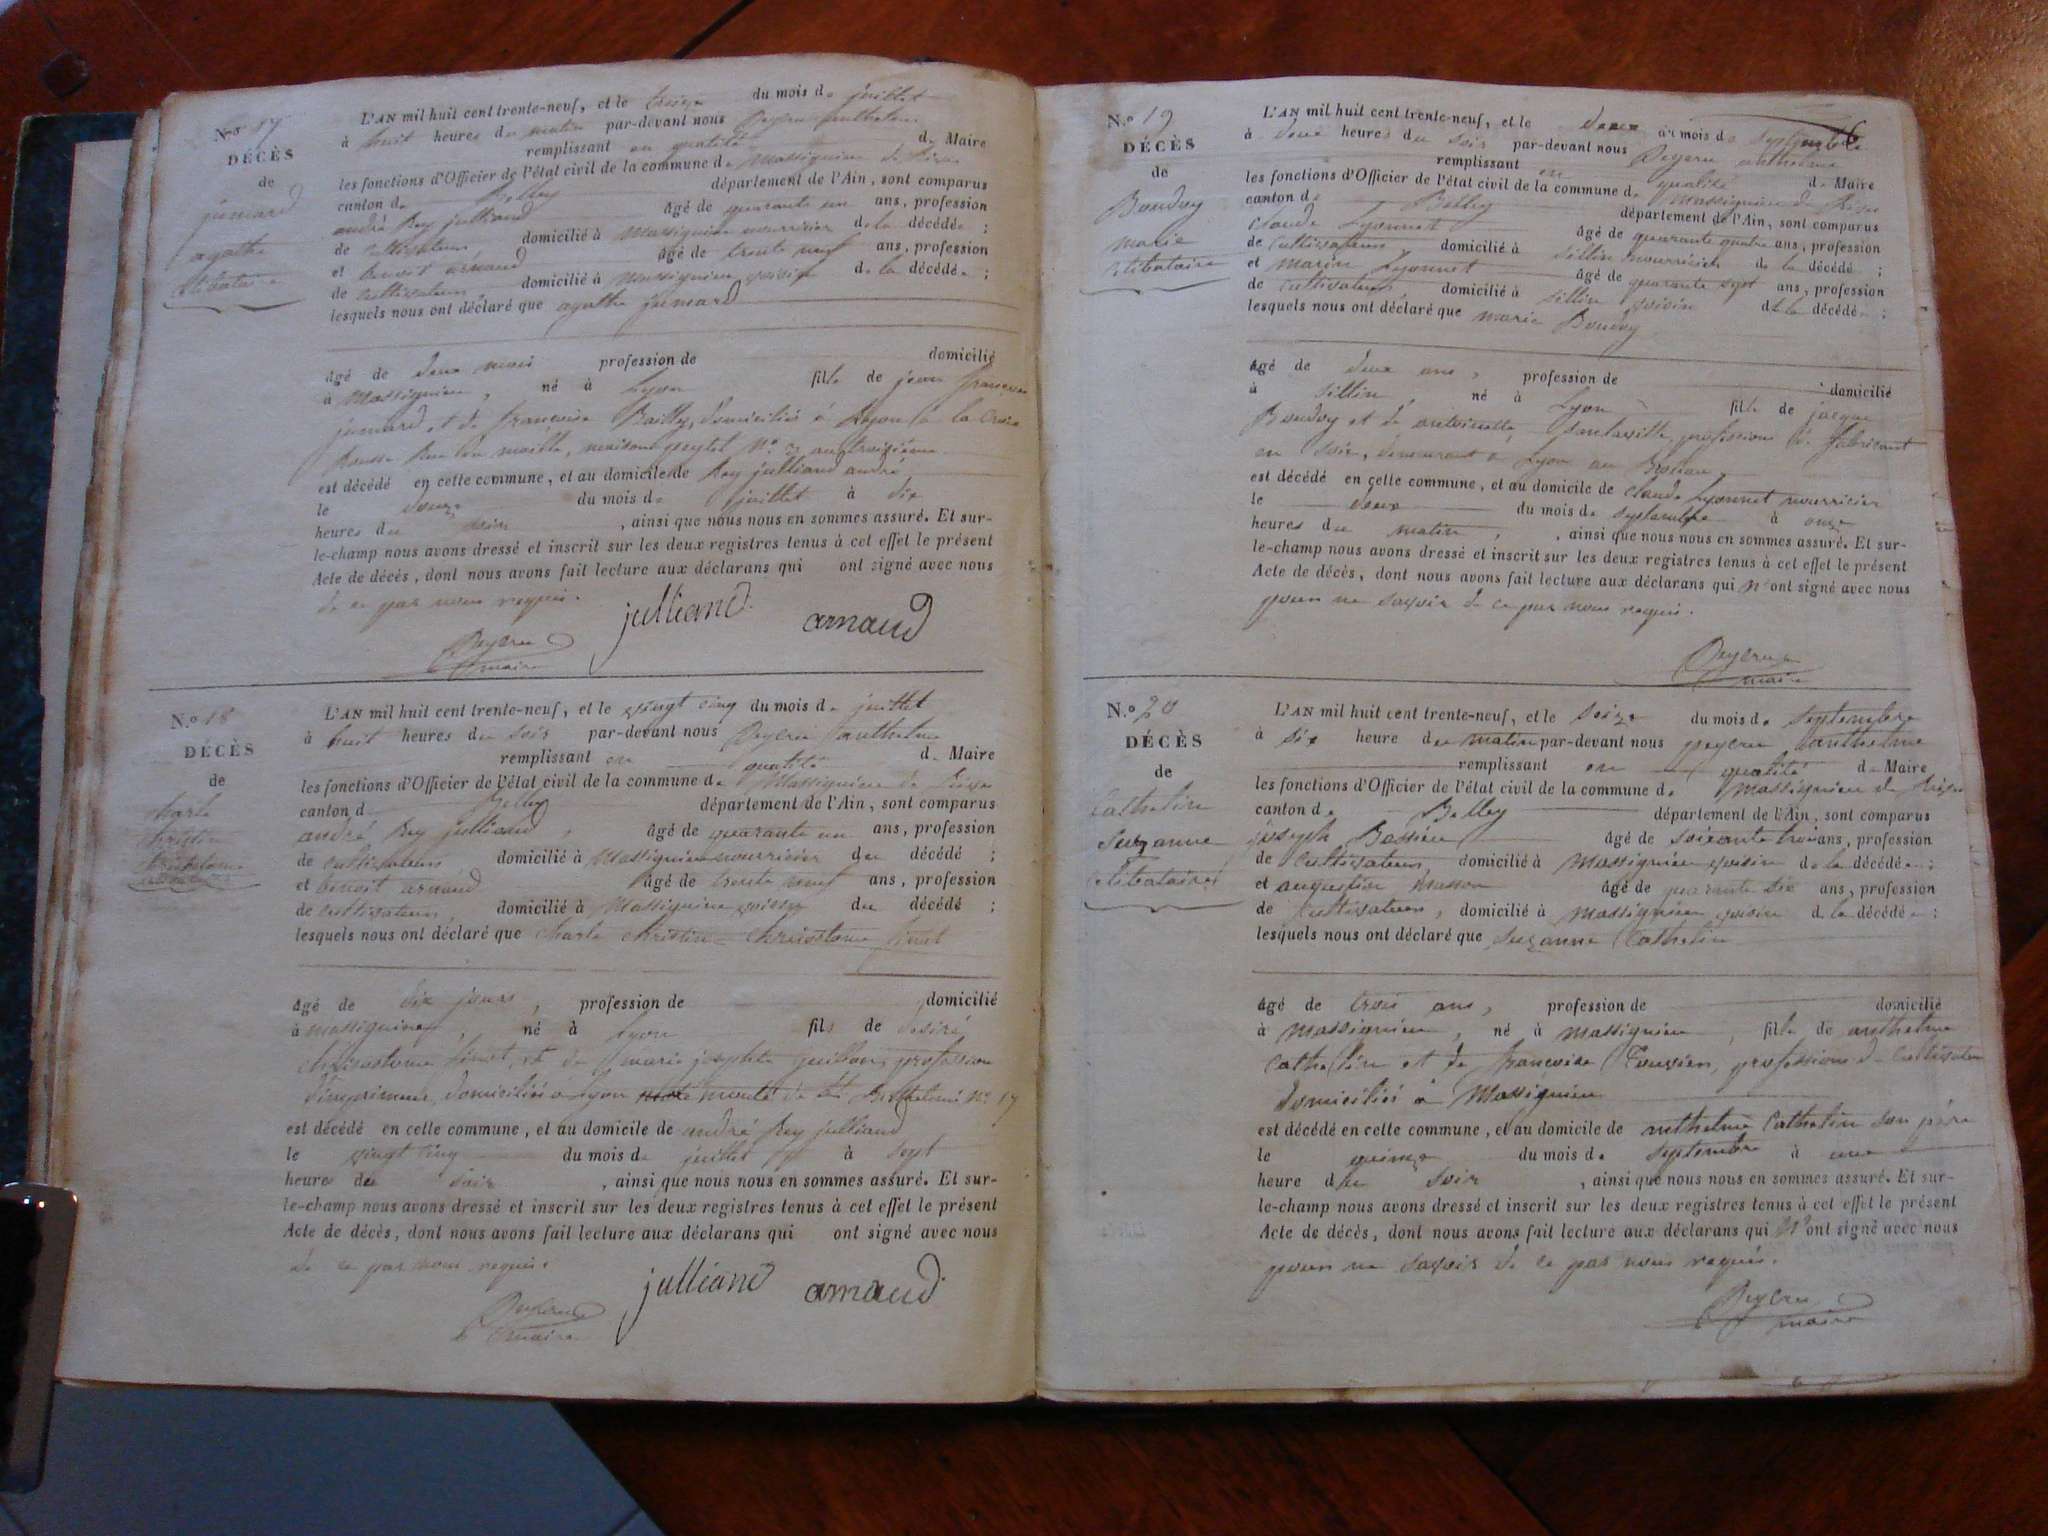 N.o 17
DÉCÈS
de
jumard
agathe
célibataire
L'AN mil huit cent trente-neuf, et le treize du mois de juillet
à huit heures du matin par-devant nous Peycru anthelme
remplissant en qualité de Maire
les fonctions d'Officier de l'état civil de la commune de Massignieu de Rives
canton de Belley département de l'Ain, sont comparus
andré Rey julliand âgé de quarante un ans, profession
de cultivateur domicilié à Massignieu nourricier de la décédée ;
et benoit arnaud âgé de trente neuf ans, profession
de cultivateur, domicilié à Massignieu voisin de la décédée ;
lesquels nous ont déclaré que agathe jumard
âgé de deux mois profession de domicilié
à Massignieu, né à Lyon fille de jean françois
jumard, et de françoise Bailly, domiciliés à Lyon à la Croix
Rousse Rue du maille, maison peytel N.o 3 au troisième
est décédé en cette commune, et au domicile de Rey julliand andré
le douze du mois de juillet à dix
heures du soir, ainsi que nous nous en sommes assuré. Et sur-
le-champ nous avons dressé et inscrit sur les deux registres tenus à cet effet le présent
Acte de décès, dont nous avons fait lecture aux déclarans qui ont signé avec nous
de ce par nous requis.
Peycru julliand arnaud
maire
N.o 18
DÉCÈS
de
charle
christin
célibataire
L'AN mil huit cent trente-neuf, et le vingt cinq du mois de juillet
à huit heures du soir par-devant nous Peycru anthelme
remplissant en qualité de Maire
les fonctions d'Officier de l'état civil de la commune de Massignieu de Rives
canton de Belley département de l'Ain, sont comparus
andré Rey julliand, âgé de quarante un ans, profession
de cultivateur domicilié à Massignieu nourricier du décédé ;
et benoit arnaud âgé de trente neuf ans, profession
de cultivateur, domicilié à Massignieu voisin du décédé ;
lesquels nous ont déclaré que charle christin chrisostome finet
âgé de dix jours, profession de domicilié
à massignieu, né à Lyon fils de desiré
chrisostome finet, et de marie josephte guillon, profession
d'imprimeur, domiciliés à Lyon monté de St Barthelemi N.o 17
est décédé en cette commune, et au domicile de andré Rey julliand
le vingt cinq du mois de juillet à sept
heures du soir, ainsi que nous nous en sommes assuré. Et sur-
le-champ nous avons dressé et inscrit sur les deux registres tenus à cet effet le présent
Acte de décès, dont nous avons fait lecture aux déclarans qui ont signé avec nous
de ce par nous requis.
Peycru julliand arnaud
maire
N.o 19
DÉCÈS
de
Boudoy
marie
célibataire
L'AN mil huit cent trente-neuf, et le deux du mois de septembre
à deux heures du soir par-devant nous Peycru anthelme
remplissant en qualité de Maire
les fonctions d'Officier de l'état civil de la commune de Massignieu de Rives
canton de Belley département de l'Ain, sont comparus
claude Lyonnet âgé de quarante quatre ans, profession
de Cultivateur domicilié à sillin nourricier de la décédée ;
et marin Lyonnet âgé de quarante sept ans, profession
de cultivateur, domicilié à sillin voisin de la décédée ;
lesquels nous ont déclaré que marie Boudoy
âgé de deux ans, profession de domicilié
à sillin né à Lyon fille de jacque
Boudoy et de antoinette, profession de fabricant
en soie, demeurant à Lyon au
est décédé en cette commune, et au domicile de claude Lyonnet nourricier
le deux du mois de septembre à onze
heures du matin, ainsi que nous nous en sommes assuré. Et sur-
le-champ nous avons dressé et inscrit sur les deux registres tenus à cet effet le présent
Acte de décès, dont nous avons fait lecture aux déclarans qui n'ont signé avec nous
pour ne savoir de ce par nous requis.
Peycru
maire
N.o 20
DÉCÈS
de
Cathelin
Suzanne
célibataire
L'AN mil huit cent trente-neuf, et le seize du mois de septembre
à six heure du matin par-devant nous peycru anthelme
remplissant en qualité de Maire
les fonctions d'Officier de l'état civil de la commune de Massignieu de Rives
canton de Belley département de l'Ain, sont comparus
joseph Bassieu âgé de soixante trois ans, profession
de Cultivateur domicilié à Massignieu voisin de la décédée ;
et augustin musson âgé de quarante six ans, profession
de Cultivateur, domicilié à Massignieu voisin de la décédée ;
lesquels nous ont déclaré que Suzanne Cathelin
âgé de trois ans, profession de domicilié
à Massignieu, né à Massignieu, fille de anthelme
Cathelin et de françoise, profession de Cultivateur
domiciliés à Massignieu
est décédé en cette commune, et au domicile de anthelme Cathelin son père
le quinze du mois de septembre à une
heure du soir, ainsi que nous nous en sommes assuré. Et sur-
le-champ nous avons dressé et inscrit sur les deux registres tenus à cet effet le présent
Acte de décès, dont nous avons fait lecture aux déclarans qui N'ont signé avec nous
pour ne savoir de ce par nous requis.
Peycru
maire